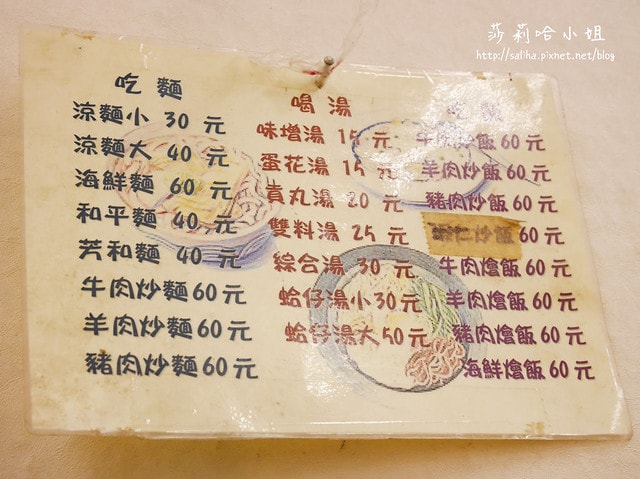 莎莉哈小姐
http://saliha.pixnet.net/blog
吃麵
涼麵小 30 元
涼麵大 40 元
海鮮麵 60 元
和平麵 40 元
芳和麵 40 元
牛肉炒麵 60 元
羊肉炒麵 60 元
豬肉炒麵 60 元
喝湯
味增湯 15 元
蛋花湯 15 元
貢丸湯 20 元
雙料湯 25 元
綜合湯 30 元
蛤仔湯小 30 元
蛤仔湯大 50 元
吃飯
牛肉炒飯 60 元
羊肉炒飯 60 元
豬肉炒飯 60 元
蝦仁炒飯 60 元
牛肉燴飯 60 元
羊肉燴飯 60 元
豬肉燴飯 60 元
海鮮燴飯 60 元